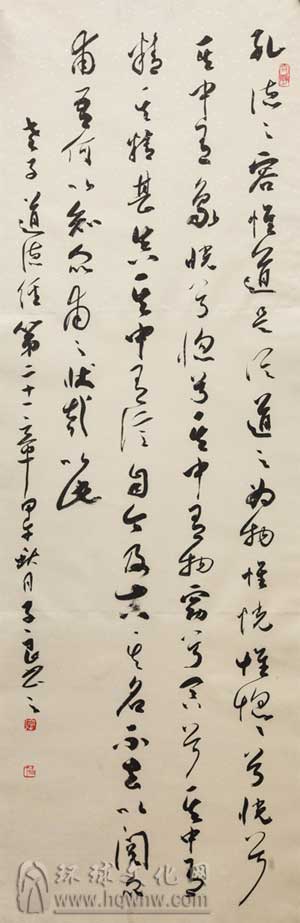 孔德之容惟道是從道之為物惟恍惟惚惚兮恍兮
其中有象恍兮惚兮其中有物窈兮冥兮其中有
精其精甚真其中有信自今及古其名不去以閱眾
甫吾何以知眾甫之狀哉以此
老子道德經第二十一章甲午秋月子良書之
环球文化网